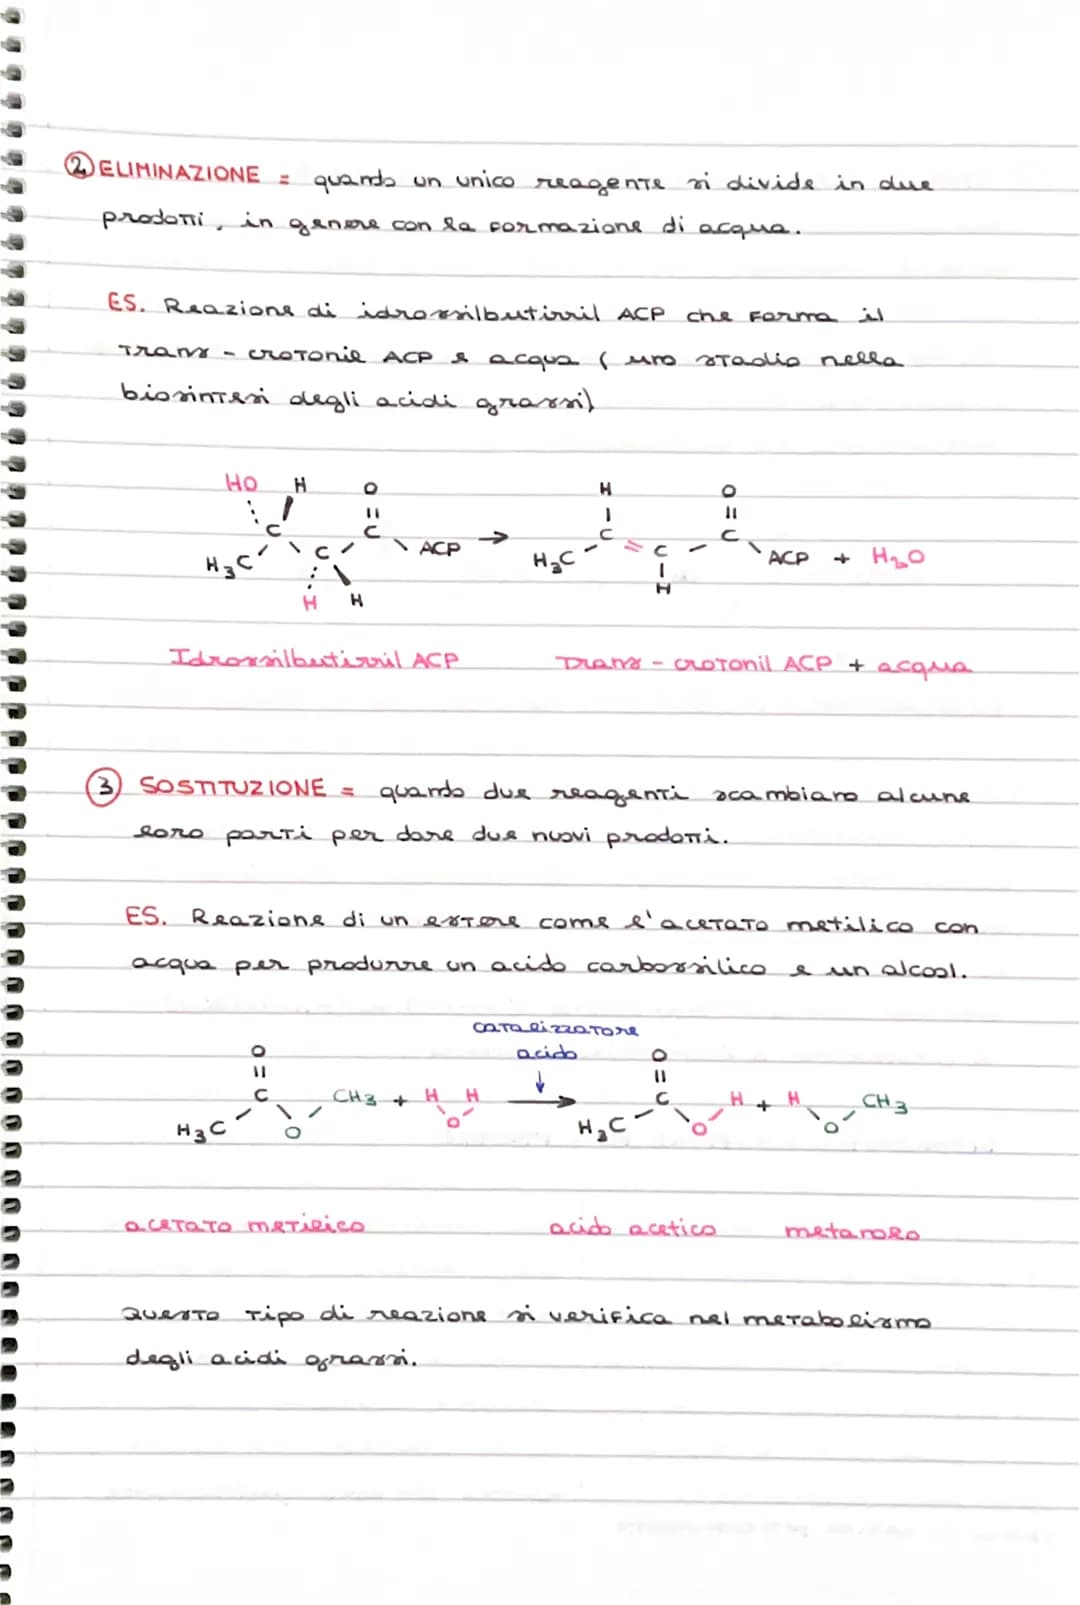 ② ELIMINAZIONE = quando un unico reagente si divide in due
prodotti, in genere con la formazione di acqua.
ES. Reazione di idrossilbutirril ACP che forma il
trans - crotonil ACP e acqua ( uno stadio nella
biosintesi degli acidi grassi)
HO H O H O
C C C C
H₃C C ACP → H₃C C ACP + H₂O
H H H
Idrossilbutirril ACP Trans - crotonil ACP + acqua
③ SOSTITUZIONE = quando due reagenti scambiano alcune
loro parti per dare due nuovi prodotti.
ES. Reazione di un estere come l'acetato metilico con
acqua per produrre un acido carbossilico e un alcool.
catalizzatore
acido
O ↓ O
C CH3 + H H → C H + H CH3
H3C O O H3C O O
acetato metilico acido acetico metanolo
Questo tipo di reazione si verifica nel metabolismo
degli acidi grassi.